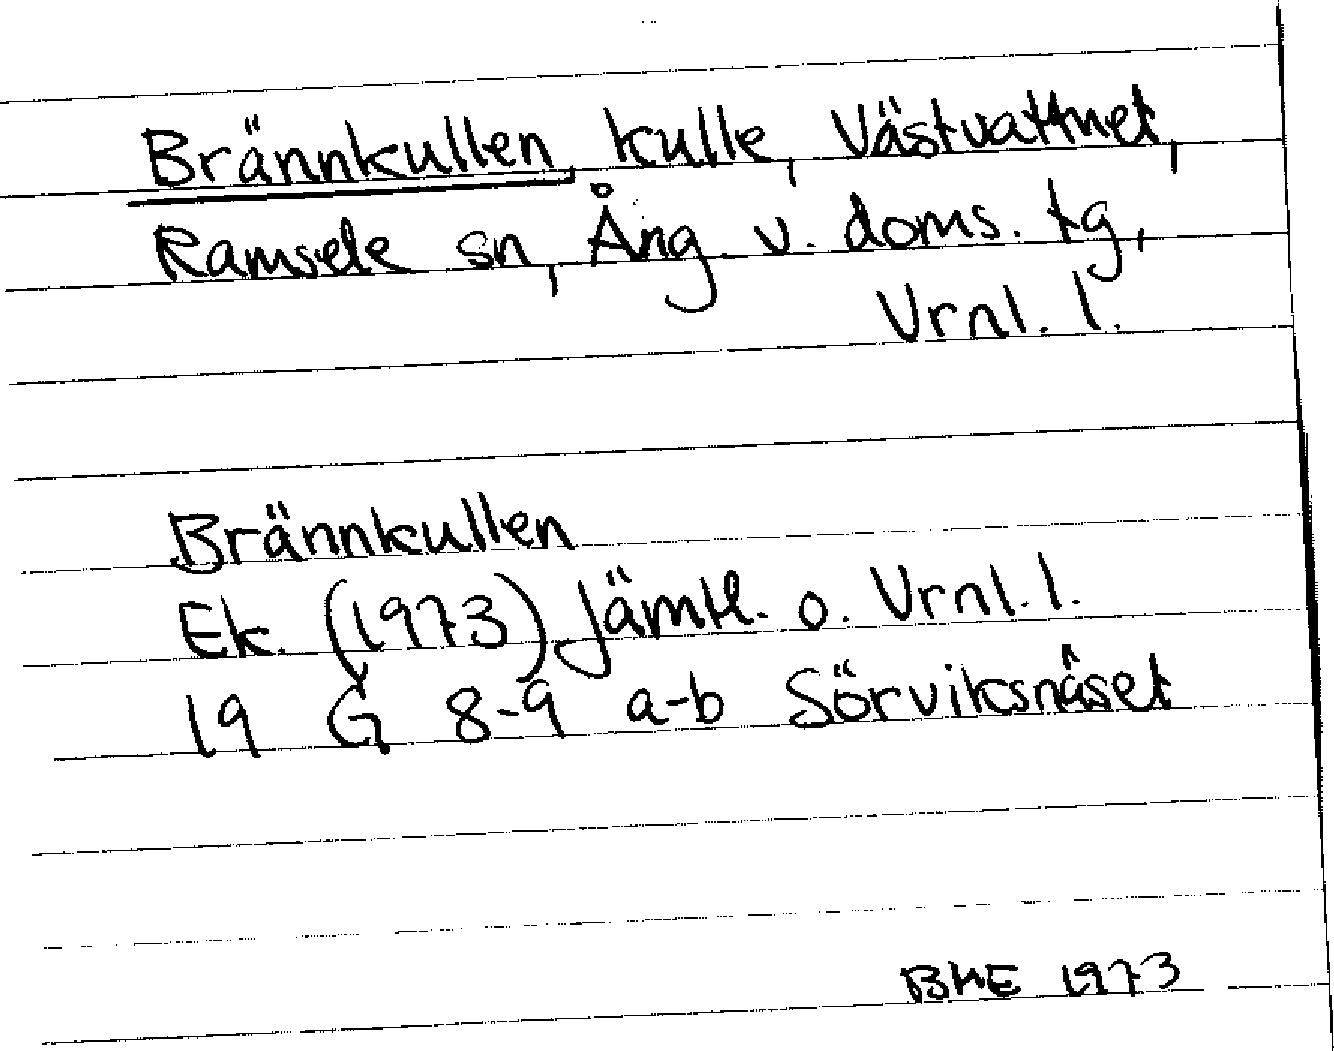 Brännkullen, kulle, Västvattnet,
Ramsele sn, Ång v. doms. tg,
Vrnl. l.
Brännkullen
Ek. (1973) Jämtl. o. Vrnl. l.
19 G 8-9 a-b Sörviksnäset
1973